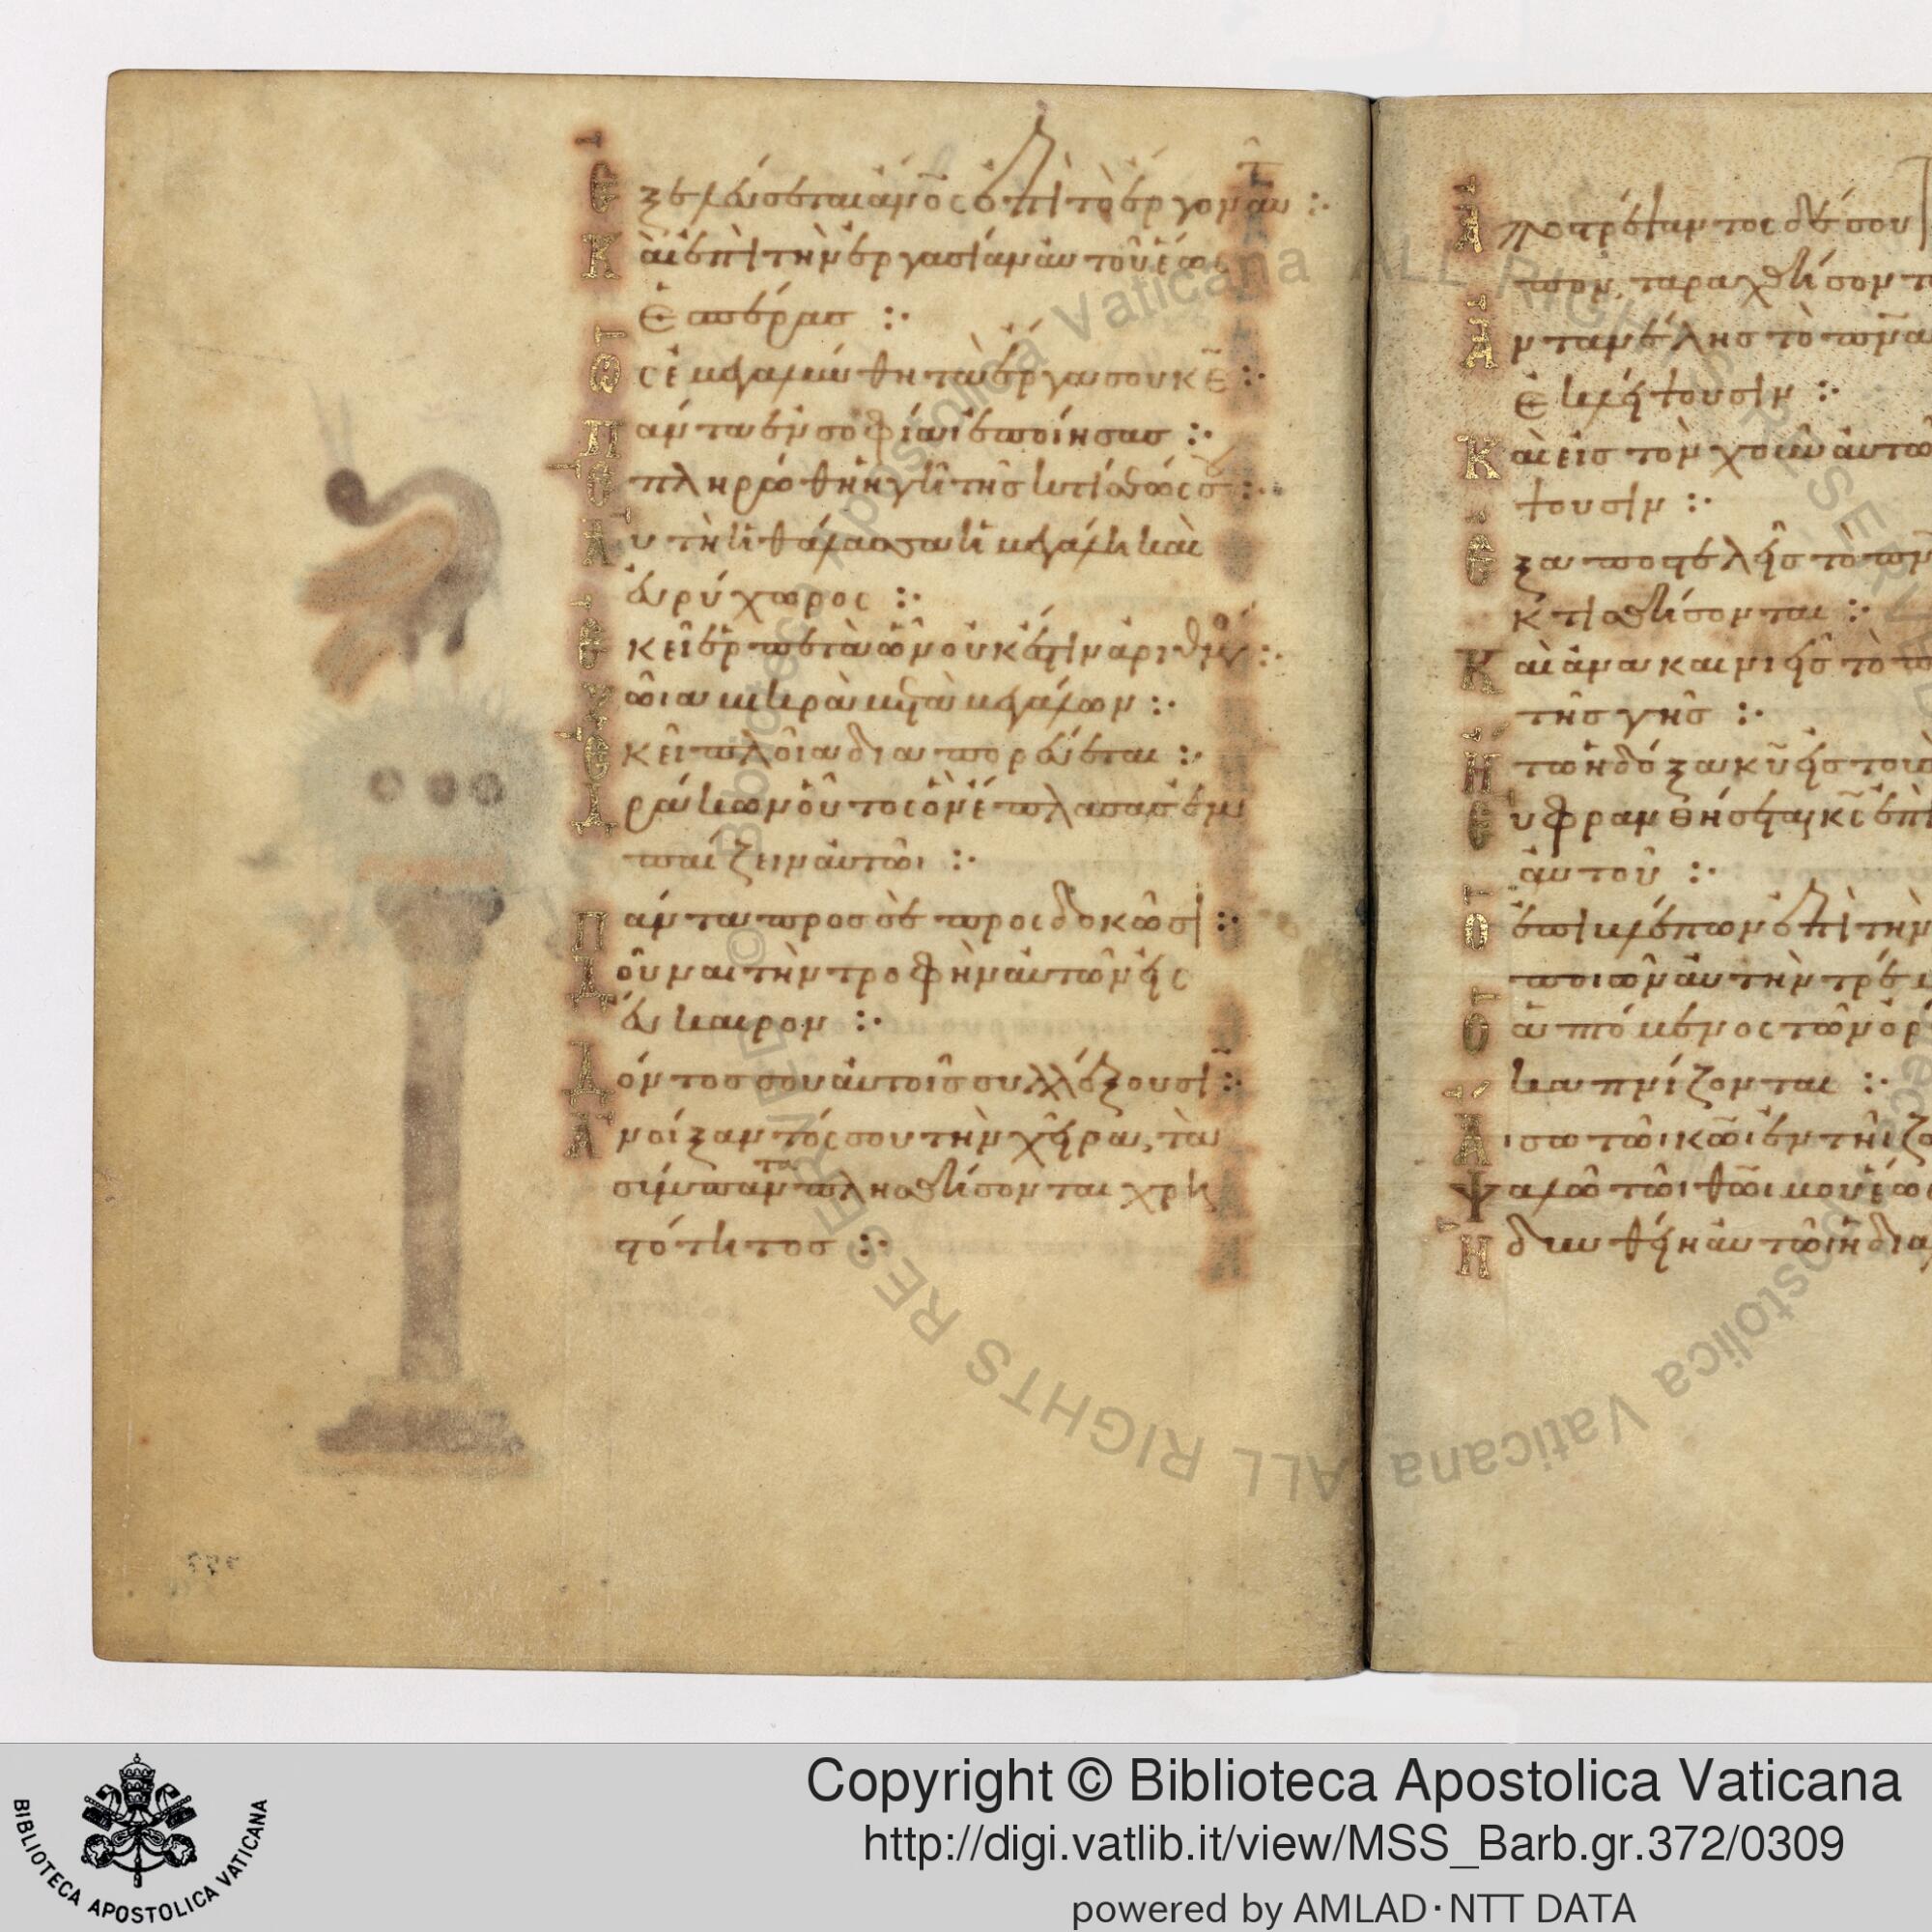 Ἐξελεύσεται ἄνος ἐπὶ τὸ ἔργον αυ :·
Καὶ ἐπὶ τὴν ἐργασίαν αὐτοῦ ἕως
ἑσπέρας :·
Ὡς ἐμεγαλύνθη τὰ ἔργα σου κε :·
Πάντα ἐν σοφίαι ἐποίησας :·
Ἐπληρώθη ἡ γῆ τῆς κτίσεώς σου :·
Αὕτη ἡ θάλασσα ἡ μεγάλη καὶ
εὐρύχωρος :·
Ἐκεῖ ἑρπετὰ ὧν οὐκ ἔστιν ἀριθμός :·
Ζῶια μικρὰ μετὰ μεγάλων :·
Ἐκεῖ πλοῖα διαπορεύεται :·
Δράκων οὗτος ὃν ἔπλασας ἐμ
παίζειν αὐτῶι :·
Πάντα προς σὲ προσδοκῶσι :·
Δοῦναι τὴν τροφὴν αὐτῶν εἰς
εὔκαιρον :·
Δόντος σου αὐτοῖς συλλέξουσιν :·
Ἀνοίξαντός σου τὴν χεῖρα, τὰ
σύμπαντα πλησθήσονται χρη
στότητος :·
Ἀποστρέψαντος δέ σου
πον ταραχθήσοντ
Ἀντανέλης τὸ πνα
ἐκλείψουσιν :·
Καὶ εἰς τὸν χοῦν αὐτῶ
ψουσιν :·
Ἐξαποστελεῖς τὸ πν
κτισθήσονται :·
Καὶ ἀνακαινιεῖς τὸ π
τῆς γῆς :·
Ἤτω ἡ δόξα κυ εἰς τοὺ
Εὐφρανθήσεται κς ἐπὶ
αὐτοῦ :·
Ὁ ἐπιβλέπων ἐπὶ τὴν
ποιῶν αὐτὴν τρέμ
Ὁ ἁπτόμενος τῶν ὀρ
καπνίζονται :·
Ἄισω τῶι κωι ἐν τῆι ζω
Ψαλῶ τῶι θωι μου ἕως
Ἡδυνθείη αὐτῶι ἡ δια
Copyright © Biblioteca Apostolica Vaticana
http://digi.vatlib.it/view/MSS_Barb.gr.372/0309
powered by AMLAD·NTT DATA
BIBLIOTECA APOSTOLICA VATICANA